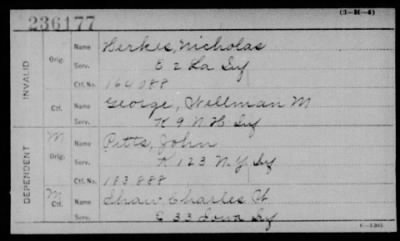 236177 (3-H-4)
INVALID
Orig. Name Herkes, Nicholas
Serv. E 2 La Inf
Ctf. No. 164088
Ctf. Name George, Wellman M
Serv. K 9 N.H Inf
DEPENDENT
M Orig. Name Pitts, John
Serv. K 123 N.Y Inf
Ctf. No. 183888
M Ctf. Name Shaw Charles
Serv. 33 Iowa Inf